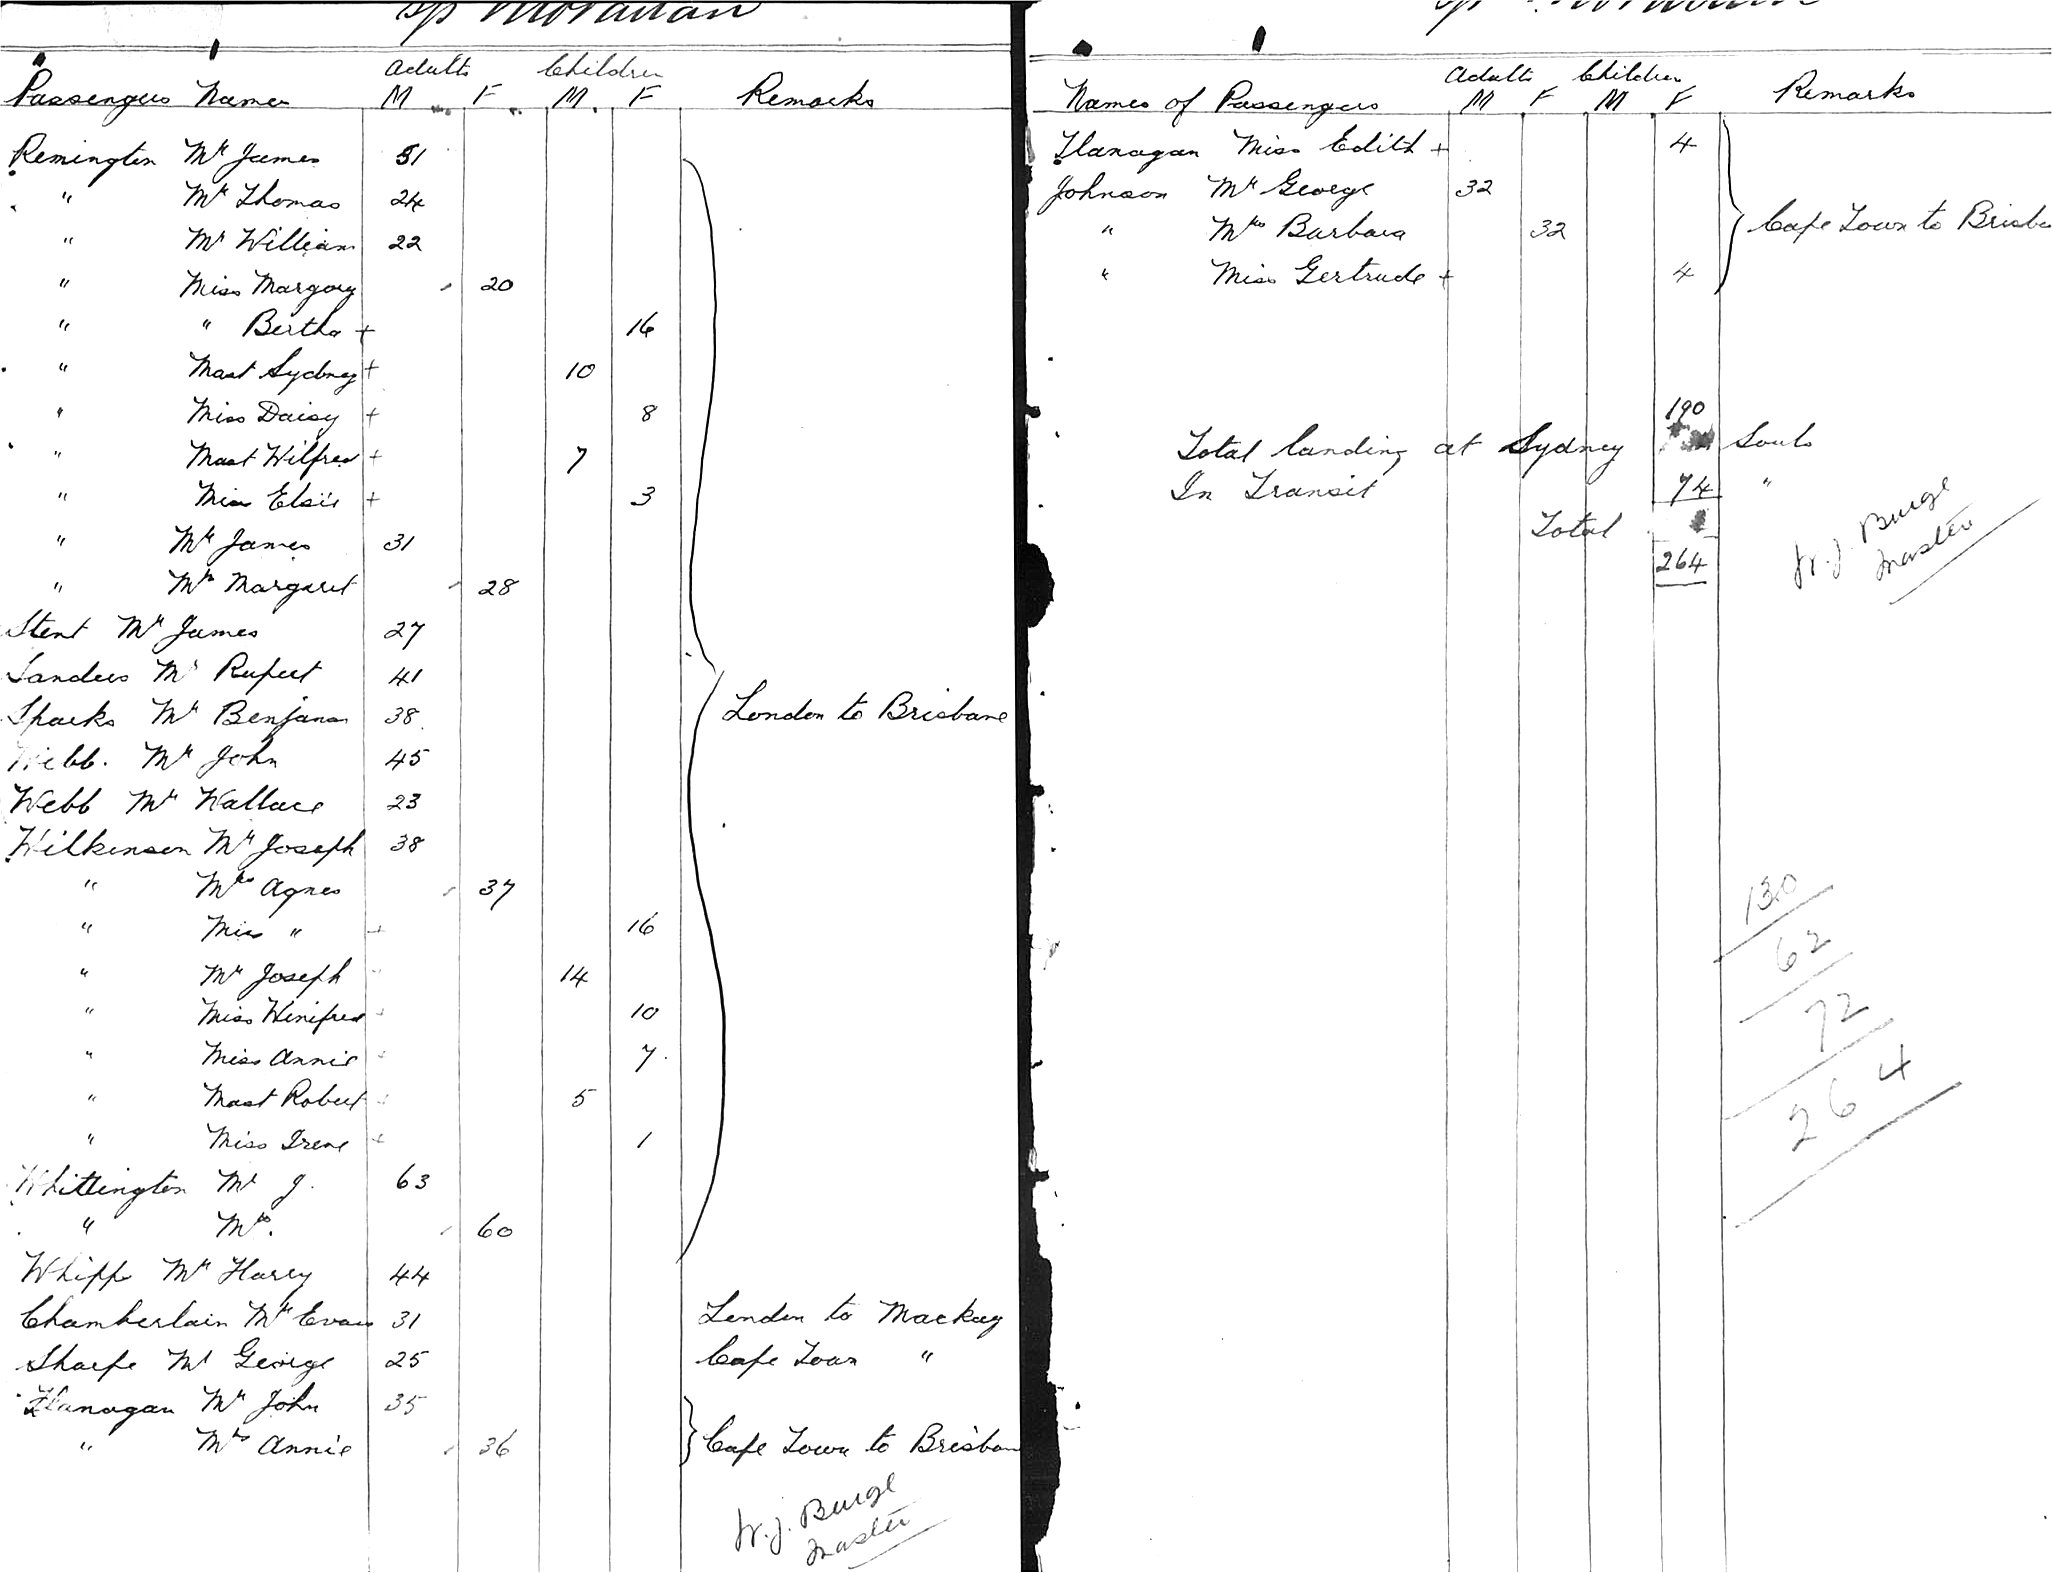 Adults Children
Passengers Names M F M F Remarks
Remington Mr James 51
" Mr Thomas 24
" Mr William 22
" Miss Margory 20
" " Bertha + 16
" Mast Sydney + 10
" Miss Daisy + 8
" Mast Wilfred + 7
" Miss Elsie + 3
" Mr James 31
" Mrs Margaret 28
Stent Mr James 27
Sanders Mr Rupert 41
Sparks Mr Benjamn 38 London to Brisbane
Webb. Mr John 45
Webb Mr Wallace 23
Wilkinson Mr Joseph 38
" Mrs Agnes 37
" Miss " + 16
" Mr Joseph 14
" Miss Winifred + 10
" Miss Annie + 7
" Mast Robert + 5
" Miss Irene + 1
Whittington Mr J. 63
" Mrs. 60
Whipp Mr Harry 44
Chamberlain Mr Evans 31 London to Mackay
Sharpe Mr George 25 Cape Town "
Flanagan Mr John 35
" Mrs Annie 36 Cape Town to Brisban
W. J. Burge
Master
Adults Children
Names of Passengers M F M F Remarks
Flanagan Miss Edith + 4
Johnson Mr George 32
" Mrs Barbara 32 Cape Town to Brisba
" Miss Gertrude + 4
190
Total landing at Sydney Souls
In Transit 74 "
Total
264
W. J. Burge
Master
130
62
72
264